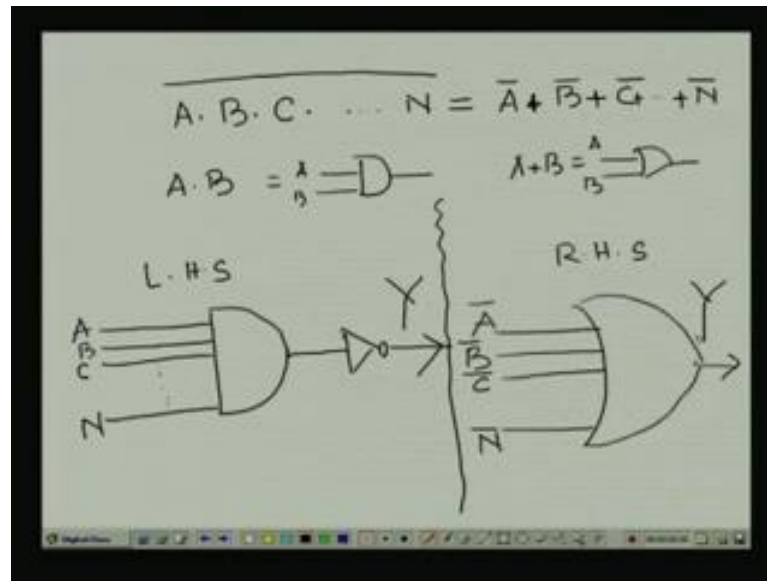 A̅.̅ ̅B̅.̅ ̅C̅.̅ ̅.̅.̅.̅ ̅N̅ = A̅ + B̅ + C̅ + .. + N̅
A.B = A B
A+B = A B
L.H.S
R.H.S
A
B
C
N
Y
A̅
B̅
C̅
N̅
Y